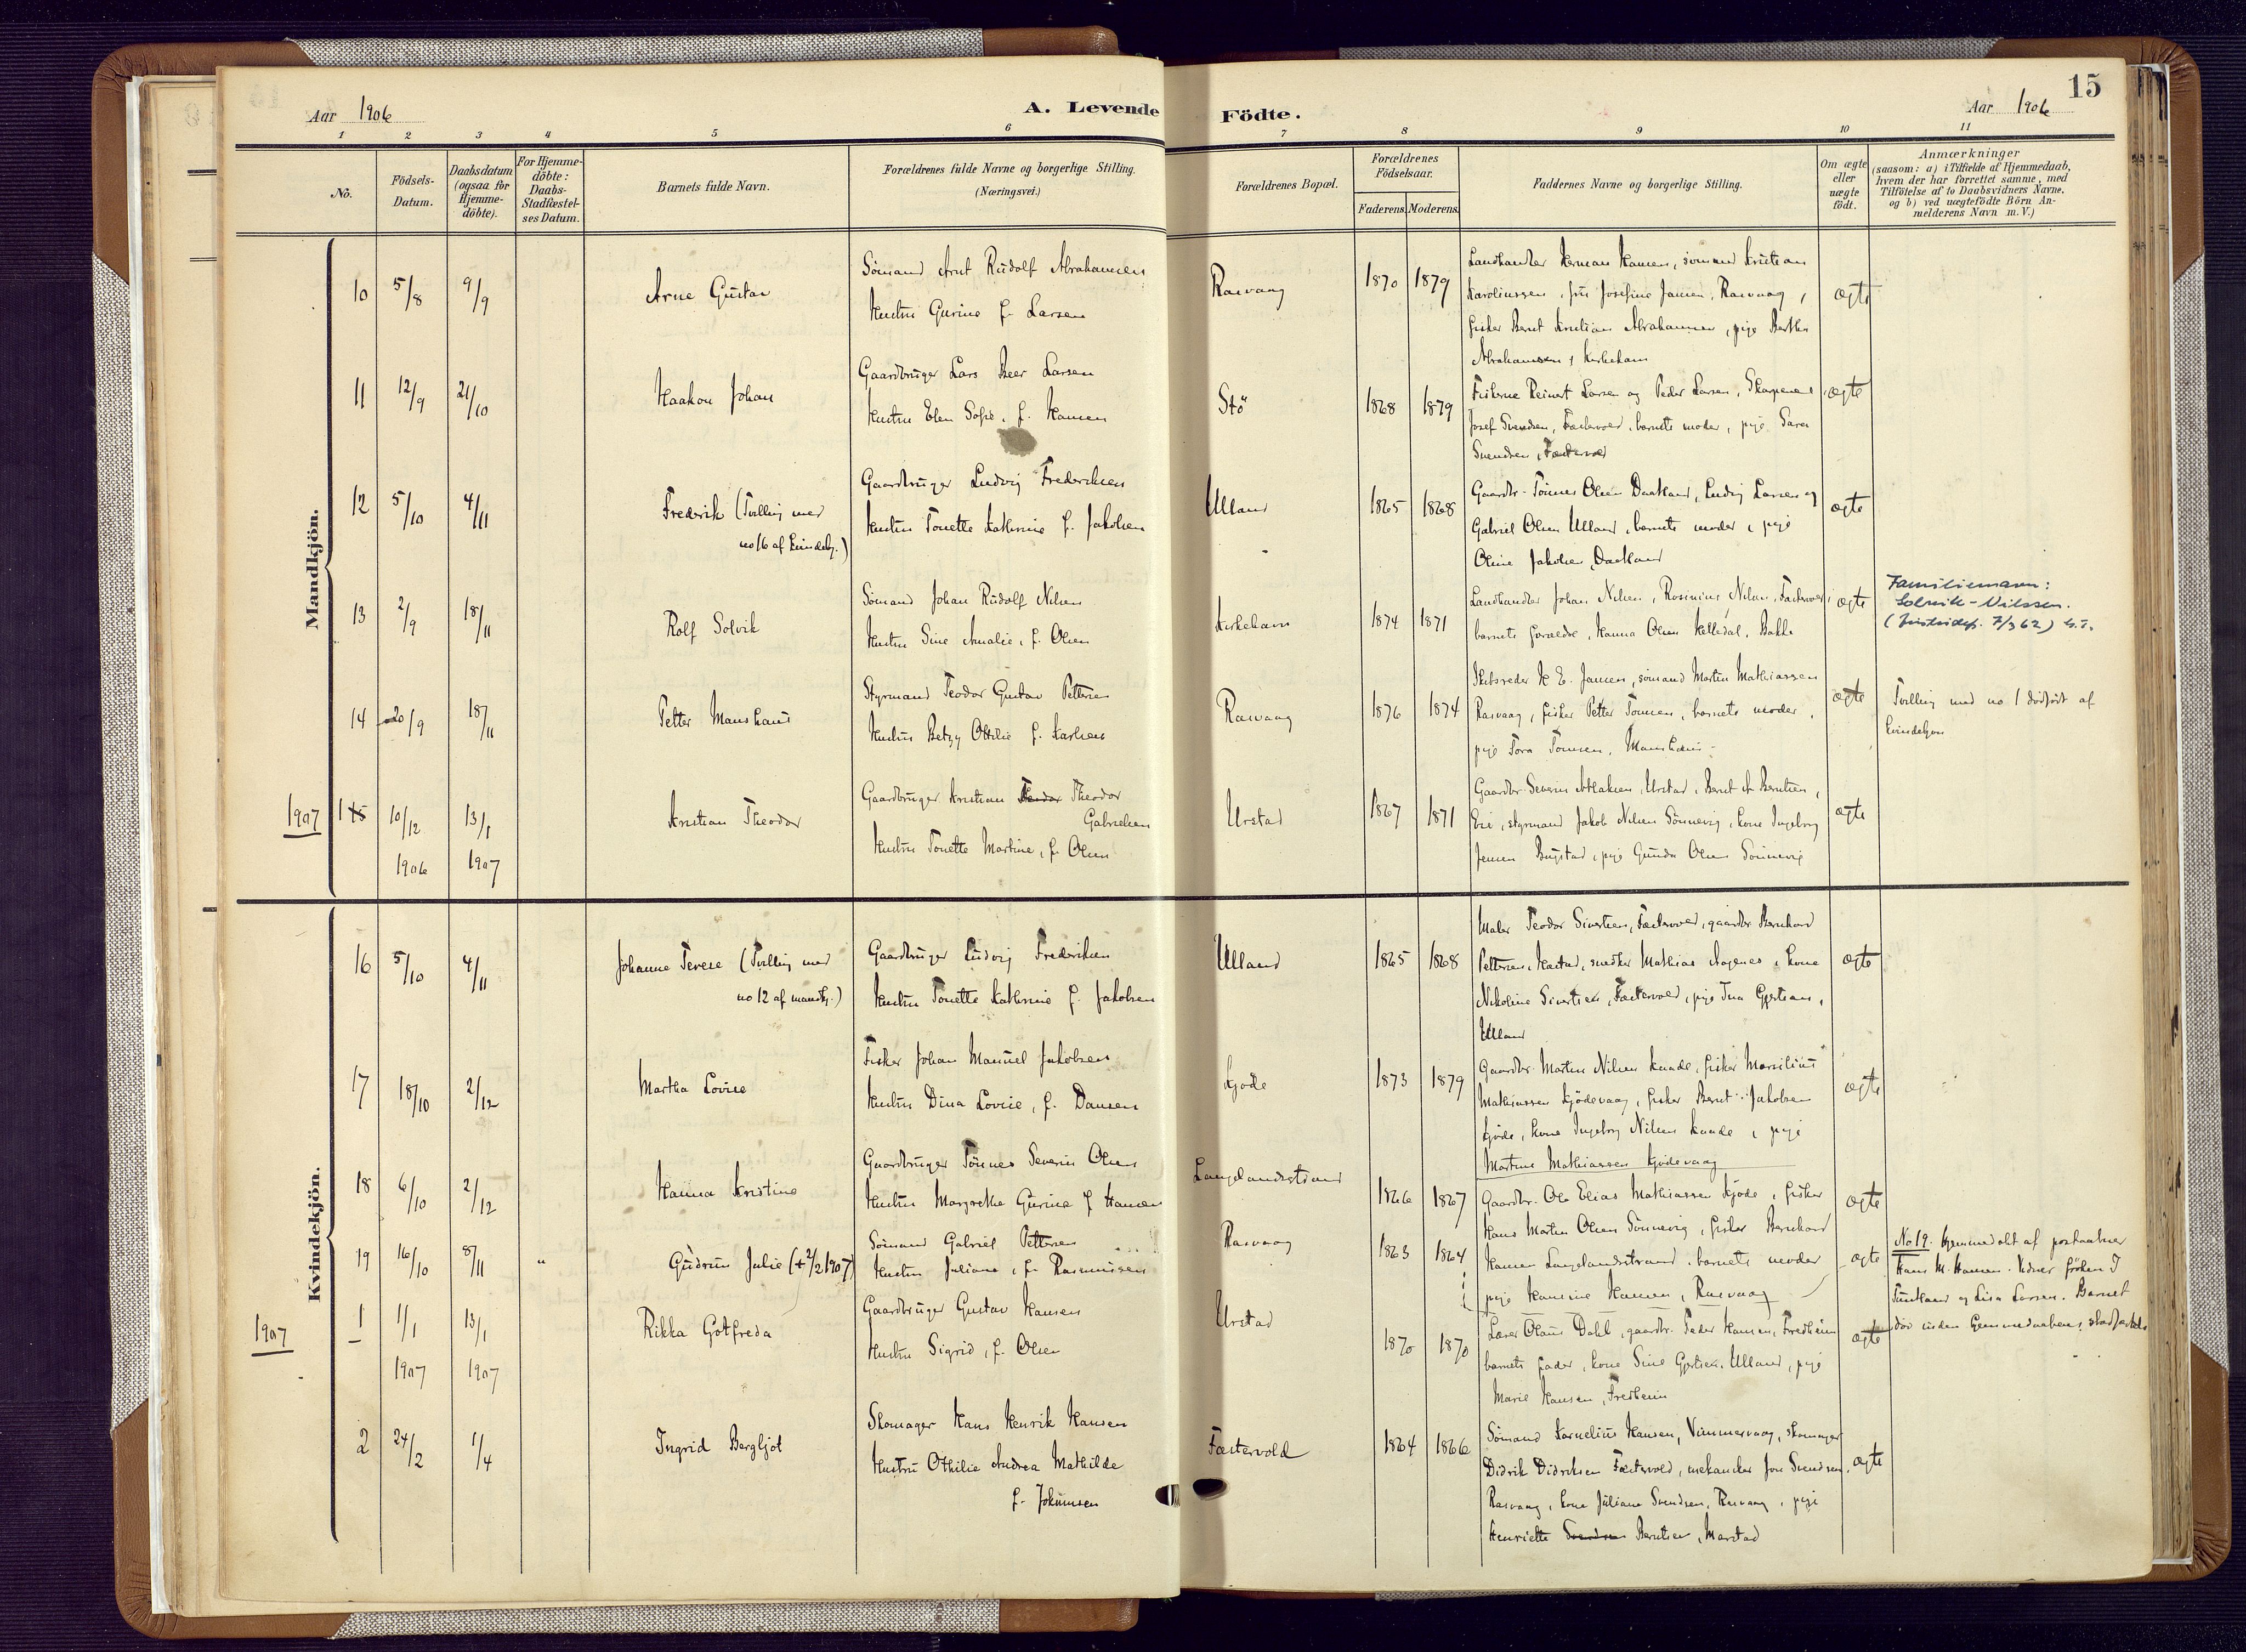 15
Aar 1906
A. Levende Födte.
Aar 1906
1 2 3 4 5 6 7 8 9 10 11
No.
Födsels-
Datum.
Daabsdatum
(ogsaa for
Hjemme-
döbte).
For Hjemme-
döbte:
Daabs-
Stadfæstel-
ses Datum.
Barnets fulde Navn.
Forældrenes fulde Navne og borgerlige Stilling.
(Næringsvei.)
Forældrenes Bopæl.
Forældrenes
Födselsaar.
Faderens. Moderens.
Faddernes Navne og borgerlige Stilling.
Om ægte
eller
uægte
födt.
Anmærkninger
(saasom: a) i Tilfælde af Hjemmedaab,
hvem der har forrettet samme, med
Tilföielse af to Daabsvidners Navne.
og b) ved uægtefödte Börn An-
melderens Navn m. V.)
Mandkjön.
10 5/8 9/9 Arne Gustav
Sömand Arnt Rudolf Abrahamsen
Hustru Gurine f. Larsen
Rasvaag 1870 1879
Landhandler Herman Hansen, sömand Kristian
Karoliussen, fru Josefine Jansen, Rasvaag,
fisker Bernt Kristian Abrahamsen, pige Bertha
Abrahamsen, Kirkehavn
ægte
11 12/9 21/10 Haakon Johan
Gaardbruger Lars Beer Larsen
Hustru Elen Sofie, f. Hansen
Stö 1868 1879
Fiskerne Reinert Larsen og Peder Larsen, Skarpenes
Josef Svendsen, Fæstervold, barnets moder, pige Sara
Svendsen, Fæstervold
ægte
12 5/10 4/11 Frederik (Tvilling med
no 16 af kvindekj.)
Gaardbruger Ludvig Frederiksen
Hustru Tonette Kathrine f. Jakobsen
Ulland 1865 1868
Gaardbr. Tönnes Olsen Daatland, Ludvig Larsen og
Gabriel Olsen Ulland, barnets moder, pige
Oline Jakobsen, Daatland
ægte
13 2/9 18/11 Rolf Solvik
Sömand Johan Rudolf Nilsen
Hustru Sine Amalie, f. Olsen
Kirkehavn 1874 1871
Landhandler Johan Nilsen, Rosinius Nilsen, Fæstervold,
barnets forældre, Hanna Olsen Kelledal, Bakke
ægte
Familienavn:
Solvik-Nilssen.
(Justisdep. 7/3 62)
14 20/9 18/11 Petter Manshaus
Styrmand Teodor Gustav Pettersen
Hustru Betzy Ottilie f. Karlsen
Rasvaag 1876 1874
Skibsreder H. E. Jansen, sömand Martin Mathiassen
Rasvaag, fisker Petter Tönnesen, barnets moder,
pige Tora Tönnesen, Manshaus
ægte
Tvilling med no 1 dödfödt af
kvindekjön
1907 1 15 10/12 13/1 Kristian Theodor
1906 1907
Gaardbruger Kristian Teodor Theodor
Gabrielsen
Hustru Tonette Martine, f. Olsen
Urstad 1867 1871
Gaardbr. Severin Aslaksen, Urstad, Bernt A Berntsen,
Eie, styrmand Jakob Nilsen Sönnevig, kone Ingeborg
Jensen Bugstad, pige Gunda Olsen Sönnevig
ægte
Kvindekjön.
16 5/10 4/11 Johanne Terese (Tvilling med
no 12 af mandkj.)
Gaardbruger Ludvig Frederiksen
Hustru Tonette Kathrine f. Jakobsen
Ulland 1865 1868
Maler Teodor Sivertsen, Fæstervold, gaardbr Bernhard
Pettersen, Hastad, snedker Mathias Aagenes, kone
Nikoline Sivertsen, Fæstervold, pige Ina Gjertsen,
Ulland
ægte
17 18/10 2/12 Martha Lovise
Fisker Johan Manuel Jakobsen
Hustru Dina Lovise, f. Dansen
Kjöde 1873 1879
Gaardbr. Martin Nilsen Knade, fisker Marsilius
Mathiassen Kjödevaag, fisker Bernt Jakobsen
Kjöde, kone Ingeborg Nilsen Knade, pige
Martine Mathiassen Kjödevaag
ægte
18 6/10 2/12 Hanna Kristine
Gaardbruger Tönnes Severin Olsen
Hustru Margrethe Gurine f Hansen
Langelandsstrand 1866 1867
Gaardbr. Ole Elias Mathiassen Kjöde, fisker
Hans Martin Olsen Sönnevig, fisker Bernhard
Hansen Langelandsstrand, barnets moder
pige Hansine Hansen, Rasvaag
ægte
19 16/10 8/11 " Gudrun Julie (+ 2/2 1907)
Sömand Gabriel Pettersen
Hustru Juliane, f. Rasmussen
Rasvaag 1863 1864
ægte
No 19. Hjemmedöbt af postaabner
Hans M. Hansen. Vidner fröken J
Tuntland og Lisa Larsen. Barnet
döde inden hjemmedaabens stadfæstelse
1907 1 1/1 13/1 Rikka Gotfreda
1907 1907
Gaardbruger Gustav Hansen
Hustru Sigrid, f. Olsen
Urstad 1870 1870
Lærer Olaus Dahl, gaardbr. Peder Hansen, Fredheim
barnets fader, kone Sine Gjertsen, Ulland, pige
Marie Hansen, Fredheim
ægte
2 24/2 1/4 Ingrid Bergljot
Skomager Hans Henrik Hansen
Hustru Othilie Andrea Mathilde
f. Jokumsen
Fæstervold 1864 1866
Sömand Kornelius Hansen, Vimmervaag, skomager
Didrik Didriksen Fæstervold, mekaniker Jon Svendsen,
Rasvaag, kone Juliane Svendsen, Rasvaag, pige
Henriette Svendsen Berntsen, Marstad
ægte